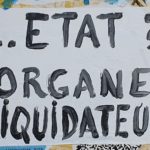 .. ETAT ?
ORGANE
LIQUIDATEU